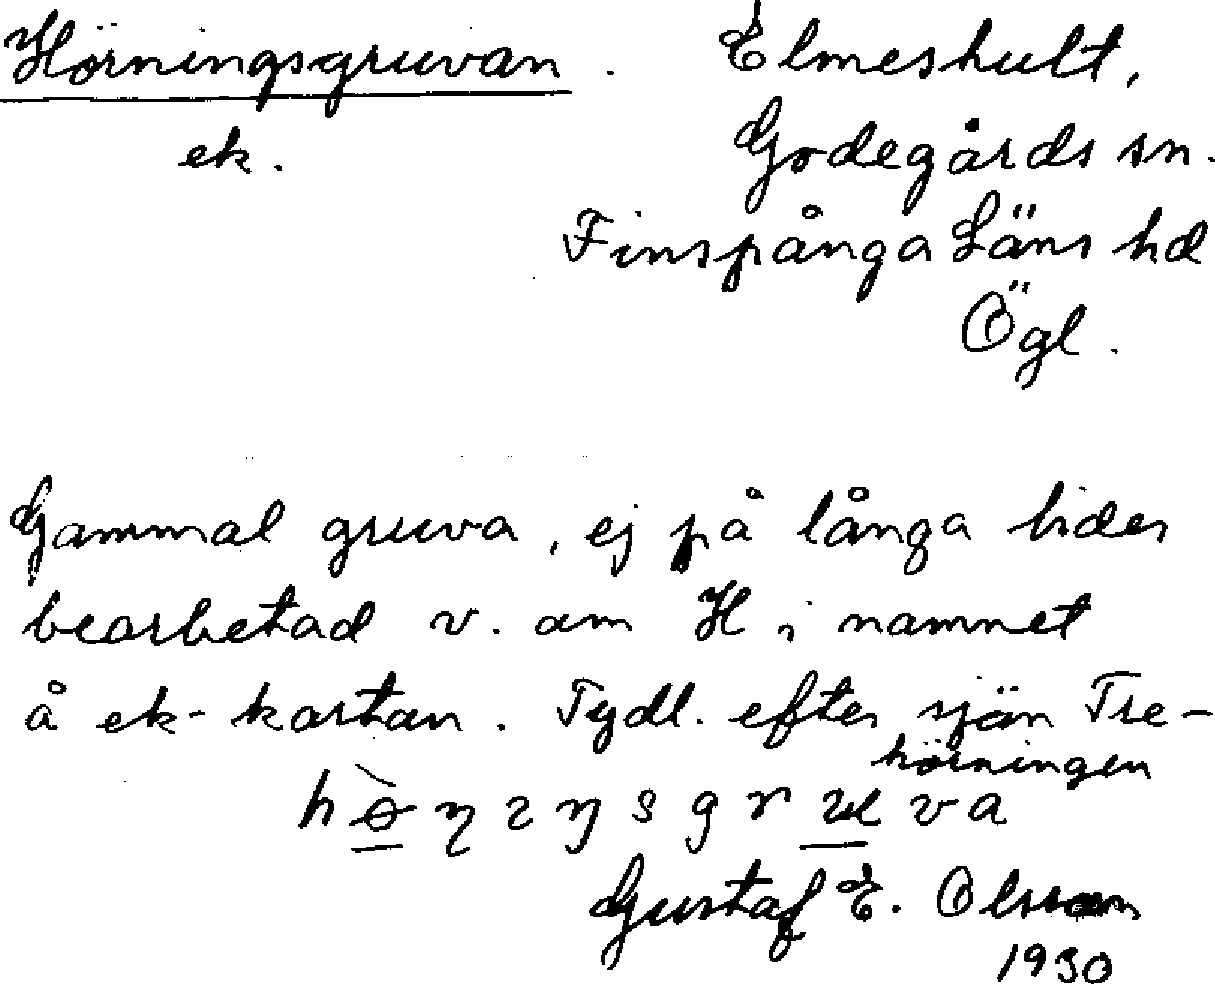 Hörningsgruvan. Elmeshult,
ek. Godegårds sn.
Finspånga Läns hd
Ögl.
Gammal gruva, ej på långa tider
bearbetad v. om H i namnet
å ek-kartan. Tydl. efter sjön Tre-
hörningen
Gustaf E. Olsson
1930